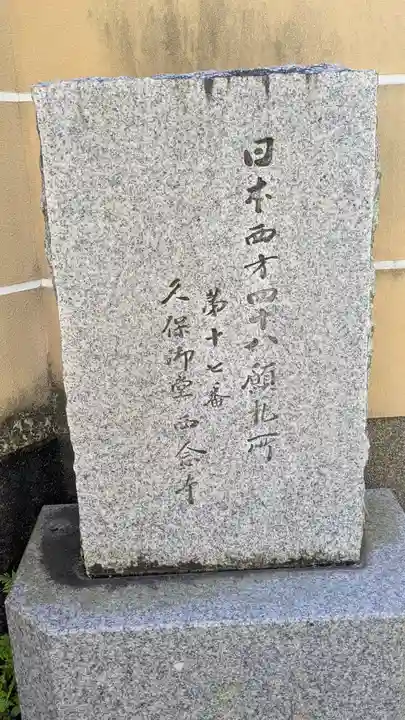 日本西方四十八願札所
第十七番
久保御堂西念寺